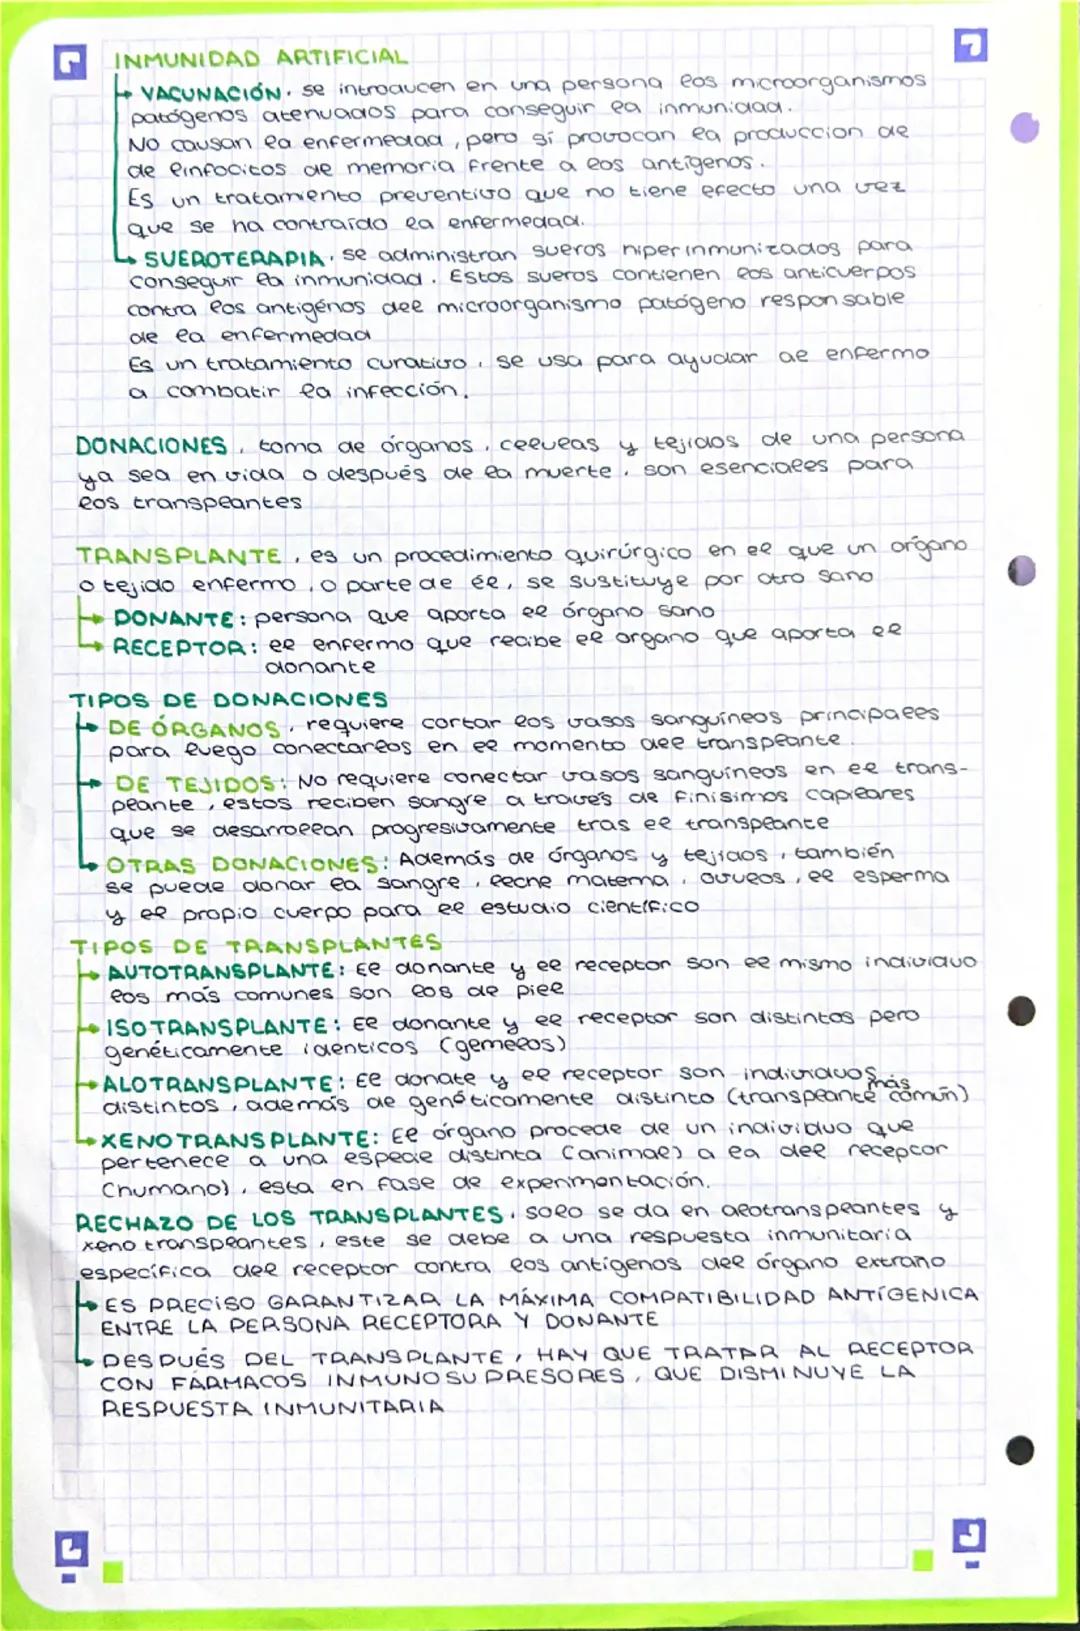 INMUNIDAD ARTIFICIAL
VACUNACIÓN. se introducen en una persona los microorganismos
patógenos atenuados para conseguir la inmunidad.
No causan la enfermedad, pero sí provocan la produccion de
de linfocitos de memoria frente a los antígenos.
Es un tratamiento preventivo que no tiene efecto una vez
que se ha contraído la enfermedad.
SUEROTERAPIA. se administran sueros hiperinmunizados para
conseguir la inmunidad. Estos sueros contienen los anticuerpos
contra los antigénos del microorganismo patógeno responsable
de la enfermedad
Es un tratamiento curativo, se usa para ayudar al enfermo
a combatir la infección.
DONACIONES, toma de órganos, células y tejidos de una persona
ya sea en vida o después de la muerte, son esenciales para
los transplantes
TRANSPLANTE, es un procedimiento quirúrgico en el que un organo
o tejido enfermo, o parte de él, se sustituye por otro sano
DONANTE: persona que aporta el órgano sano
RECEPTOR: el enfermo que recibe el organo que aporta el
donante
TIPOS DE DONACIONES
DE ÓRGANOS, requiere cortar los vasos sanguíneos principales
para luego conectarlos en el momento del transplante.
DE TEJIDOS: No requiere conectar vasos sanguíneos en el trans-
plante, estos reciben sangre a través de finísimos capilares
que se desarrollan progresivamente tras el transplante
OTRAS DONACIONES: Además de órganos y tejidos, también
se puede donar la sangre, leche materna, óvulos, el esperma
y el propio cuerpo para el estudio científico
TIPOS DE TRANSPLANTES
AUTOTRANSPLANTE: El donante y el receptor son el mismo individuo
los más comunes son los de piel
ISOTRANSPLANTE: El donante y el receptor son distintos pero
genéticamente identicos (gemelos)
ALOTRANSPLANTE: El donate y el receptor son individuos
distintos, además de genéticamente distinto (transplante más común)
XENOTRANSPLANTE: El órgano procede de un individuo que
pertenece a una especie distinta (animal) a la del receptor
(humano), esta en fase de experimentación.
RECHAZO DE LOS TRANSPLANTES. solo se da en alotransplantes y
xenotransplantes, este se debe a una respuesta inmunitaria
específica del receptor contra los antígenos del órgano extraño
ES PRECISO GARANTIZAR LA MÁXIMA COMPATIBILIDAD ANTÍGENICA
ENTRE LA PERSONA RECEPTORA Y DONANTE
DESPUÉS DEL TRANSPLANTE, HAY QUE TRATAR AL RECEPTOR
CON FÁRMACOS INMUNOSUPRESORES, QUE DISMINUYE LA
RESPUESTA INMUNITARIA